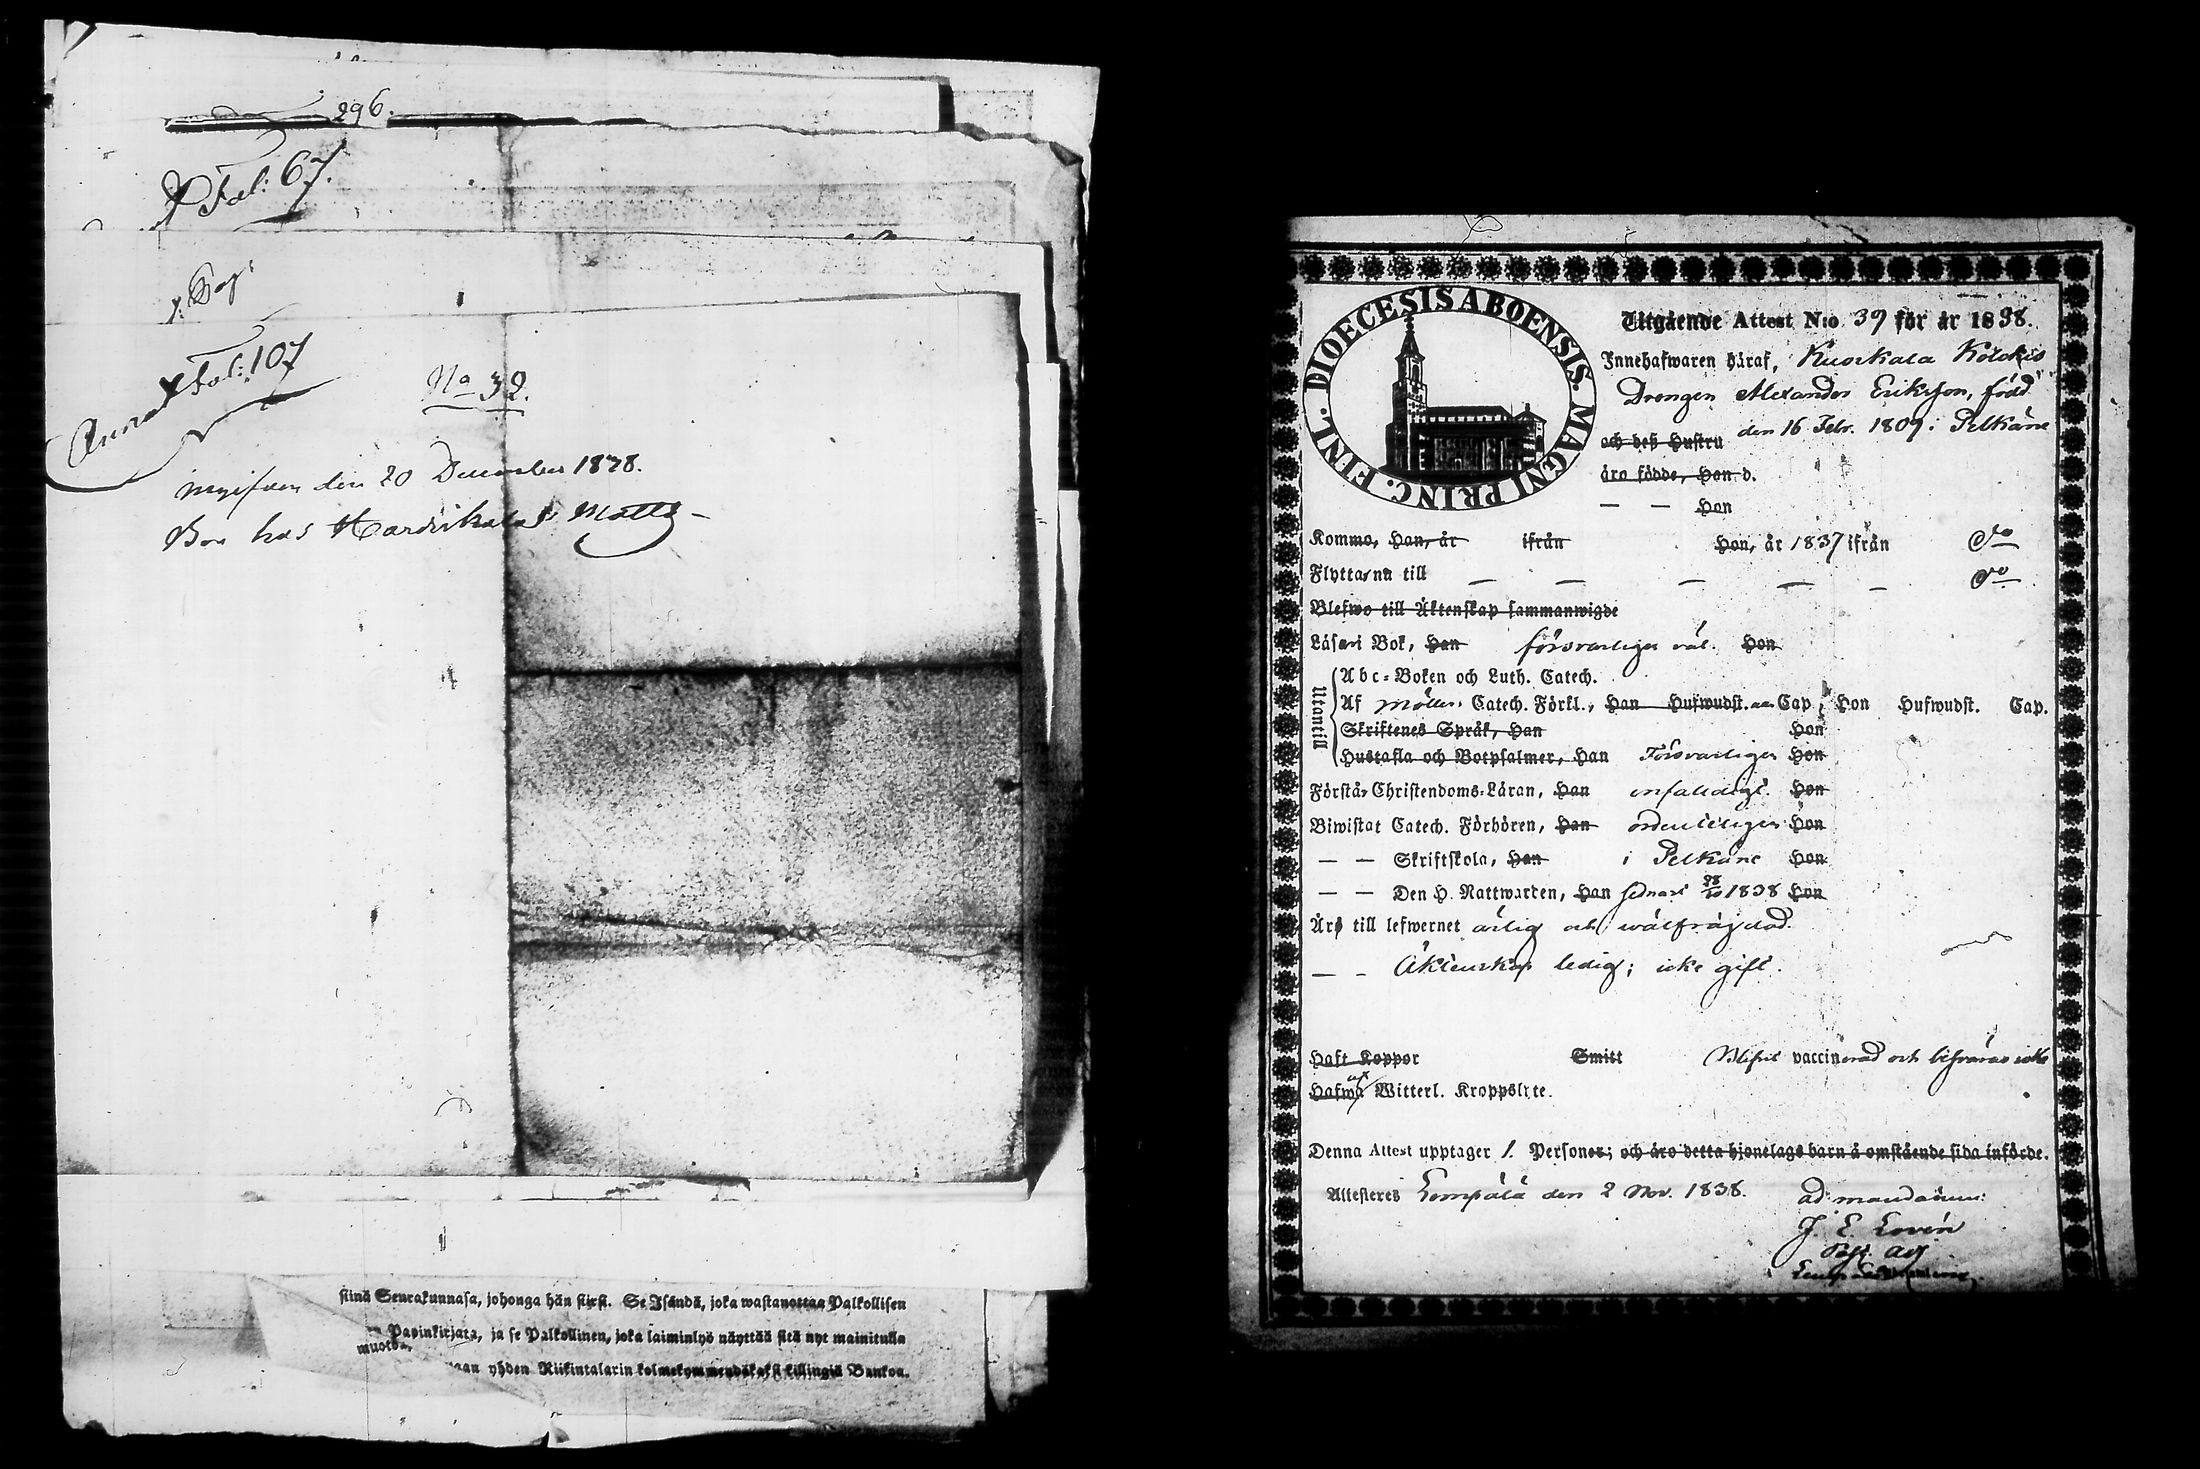 296.
Fol: 67.
Fol: 107
No 32.
ingifven den 20 December 1838.
Bor hos Harvikala Matts
siinä Seurakunnasa, johonga hän siirsi. Se Isändä, joka wastanottaa Palkollisen
Papinkirjata, ja se Palkollinen, joka laiminlyö näyttää sitä nyt mainitulla
muotoa,
yhden Riikintalarin kolmekymmendäkaksi killingiä Bankoa.
DIOECESIS ABOENSIS. MAGNI PRINC. FINL.
Utgående Attest N:o 39 för år 1838.
Innehafwaren häraf, Kuoskala
Drengen Alexander Eriksson, född
och deß Hustru den 16 Febr. 1809 i Pelkäne
äro födde, Han d.
— — Hon
Komme, Han, år ifrån Hon, år 1837 ifrån do
Flytta nu till — — — — — do
Blefwo till Äktenskap sammanwigde
Läsa i Bok, Han försvarligen väl. Hon
Utantill
Abc-Boken och Luth. Catech.
Af Möllers Catech. Förkl., Han Hufwudst. Cap, Hon Hufwudst. Cap.
Skriftenes Språk, Han Hon
Hustafla och Botpsalmer, Han Försvarligen Hon
Förstå Christendoms-Läran, Han enfaldigt. Hon
Biwistat Catech. Förhören, Han ordentligen Hon
— — Skriftskola, Han i Pelkäne Hon
— — Den H. Nattwarden, Han sednast 28/10 1838 Hon
Äro till lefwernet ärlig och wälfrägdad.
— — Äktenskap ledig; icke gift.
Haft Koppor Smitt Blifvit vaccinerad och besväras icke
Hafwa af Witterl. Kroppslyte.
Denna Attest upptager 1. Personer; och äro detta hjonelags barn å omstående sida införde.
Attesteres Lempälä den 2 Nov. 1838. ad mandatum:
J. E. Lovén
Past. Adj